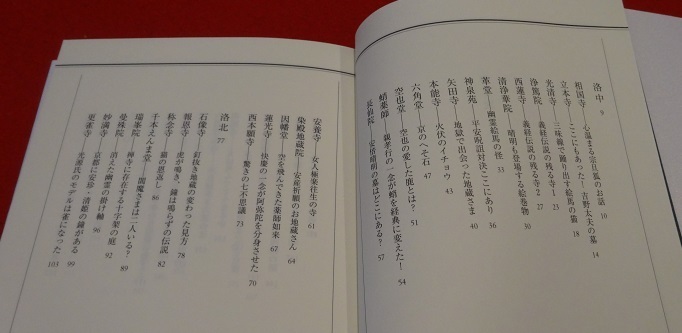 洛中 9
相国寺――心温まる宗旦狐のお話 10
立本寺――ここにもあった！吉野太夫の墓 14
光清寺――三味線で踊り出す絵馬の猫 18
義経伝説の残る寺1 23
西蓮寺――義経伝説の残る寺2 27
清浄華院――晴明も登場する絵巻物 30
革堂――幽霊絵馬の怪 33
神泉苑――平安呪詛対決ここにあり 36
矢田寺――地獄で出会った地蔵さま 40
本能寺――火伏のイチョウ 43
六角堂――京のへそ石 47
空也堂――空也の愛した鹿とは？ 51
蛸薬師――親孝行の一念が蛸を経典に変えた！ 54
安倍晴明の墓はどこにある？ 57
安養寺――女人極楽往生の寺 61
染殿地蔵院――安産祈願のお地蔵さん 64
因幡堂――空を飛んできた薬師如来 67
蓮光寺――快慶の一念が阿弥陀を分身させた 70
西本願寺――驚きの七不思議 73
洛北 77
石像寺――釘抜き地蔵の変わった見方 78
報恩寺――虎が鳴き、鐘は鳴らずの伝説 82
称念寺――猫の恩返し 86
千本えんま堂――閻魔さまは二人いる？ 89
瑞峯院――禅寺に存在する十字架の庭 92
曼殊院――消えた幽霊の掛け軸 96
妙満寺――京都に安珍・清姫の鐘がある 99
更雀寺――光源氏のモデルは雀になった 103